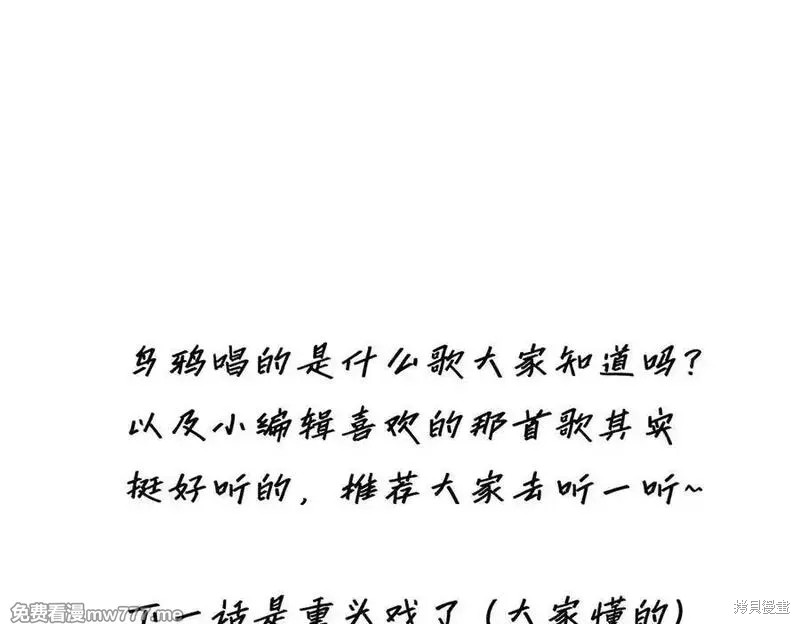 乌鸦唱的是什么歌大家知道吗?
以及小编辑喜欢的那首歌其实
挺好听的，推荐大家去听一听~
下一话是重头戏了(大家懂的)
免费看漫mw777.me
拷貝漫畫